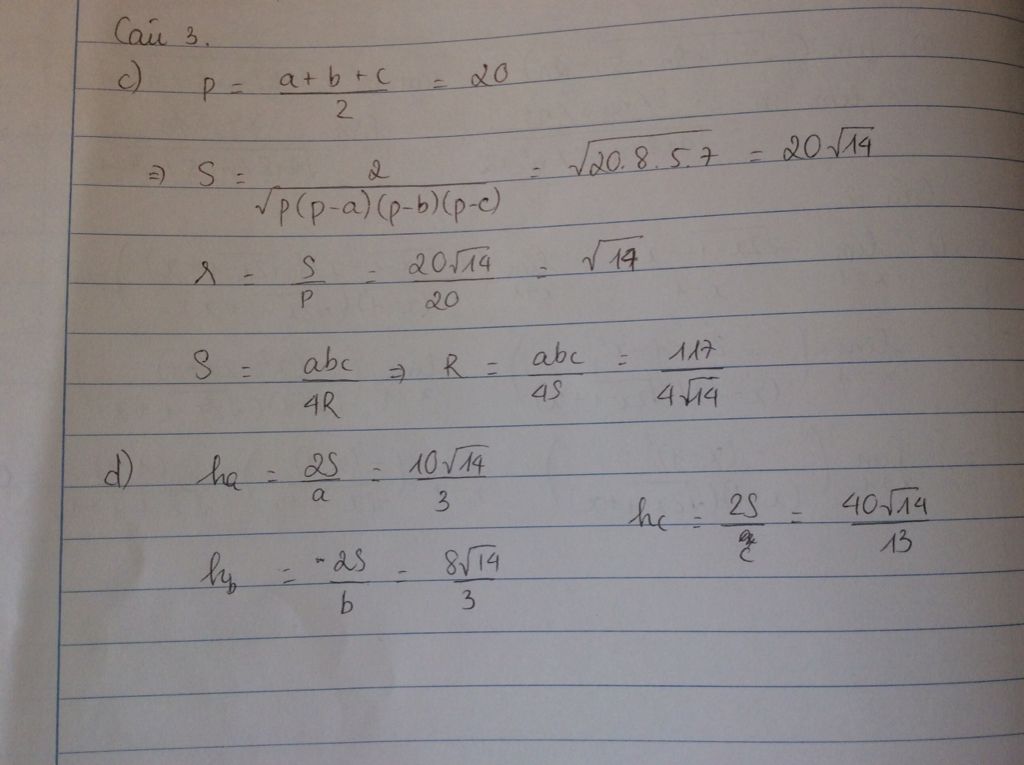 Câu 3.
c) p = (a + b + c)/2 = 20
⇒ S = 2/√(p(p-a)(p-b)(p-c)) = √(20.8.5.7) = 20√14
r = S/p = 20√14/20 = √14
S = abc/4R ⇒ R = abc/4S = 117/(4√14)
d) ha = 2S/a = 10√14/3
hc = 2S/c = 40√14/13
hb = -2S/b = 8√14/3